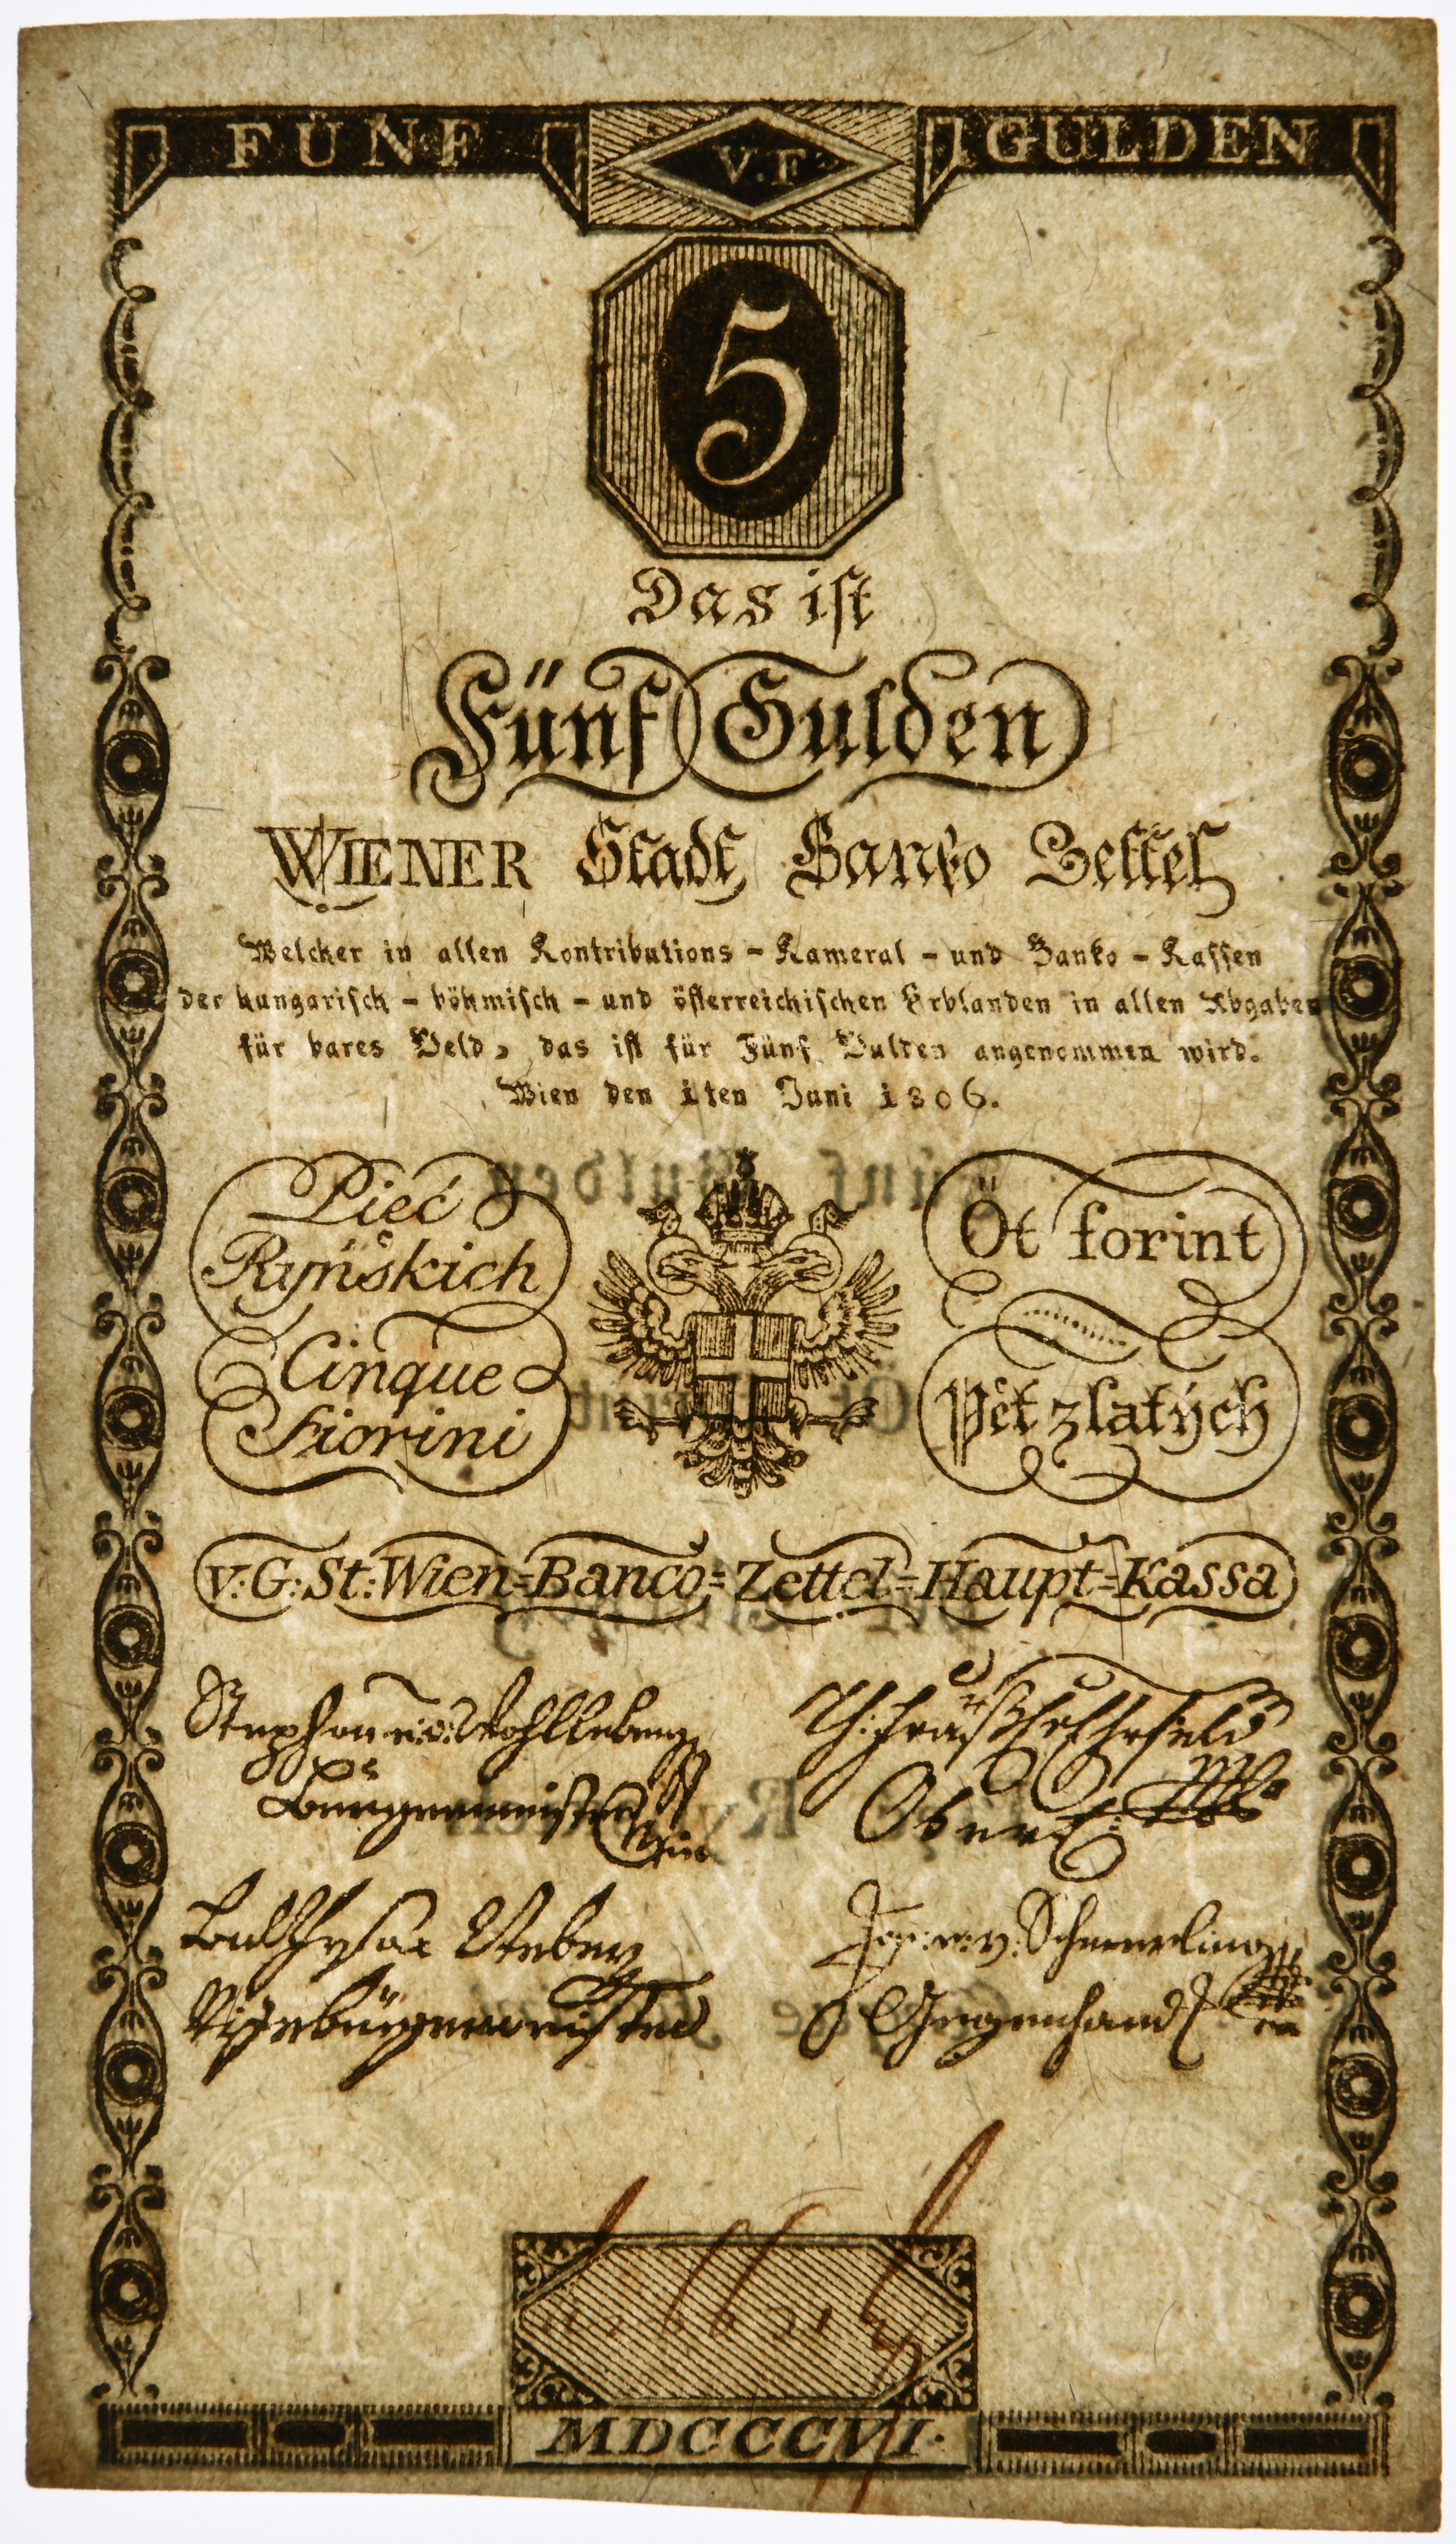 FÜNF V.F GULDEN
5
Das iſt
Fünf Gulden
WIENER Stadt Banko Zettel
Welcher in allen Kontributions - Kameral - und Banko - Kaſſen
der hungariſch - böhmiſch - und öſterreichiſchen Erblanden in allen Abgaben
für bares Geld, das iſt für Fünf Gulden angenommen wird.
Wien den 1ten Juni 1806.
Pieć
Ryńskich
Cinque
Fiorini
Öt forint
Pět zlatých
v: G: St: Wien=Banco=Zettel=Haupt=Kassa
Stephan v: Wohlleben
Burgermeister
Ober
Vizebürgermeister
v: Schmerling
Gegenhand
MDCCCVI.